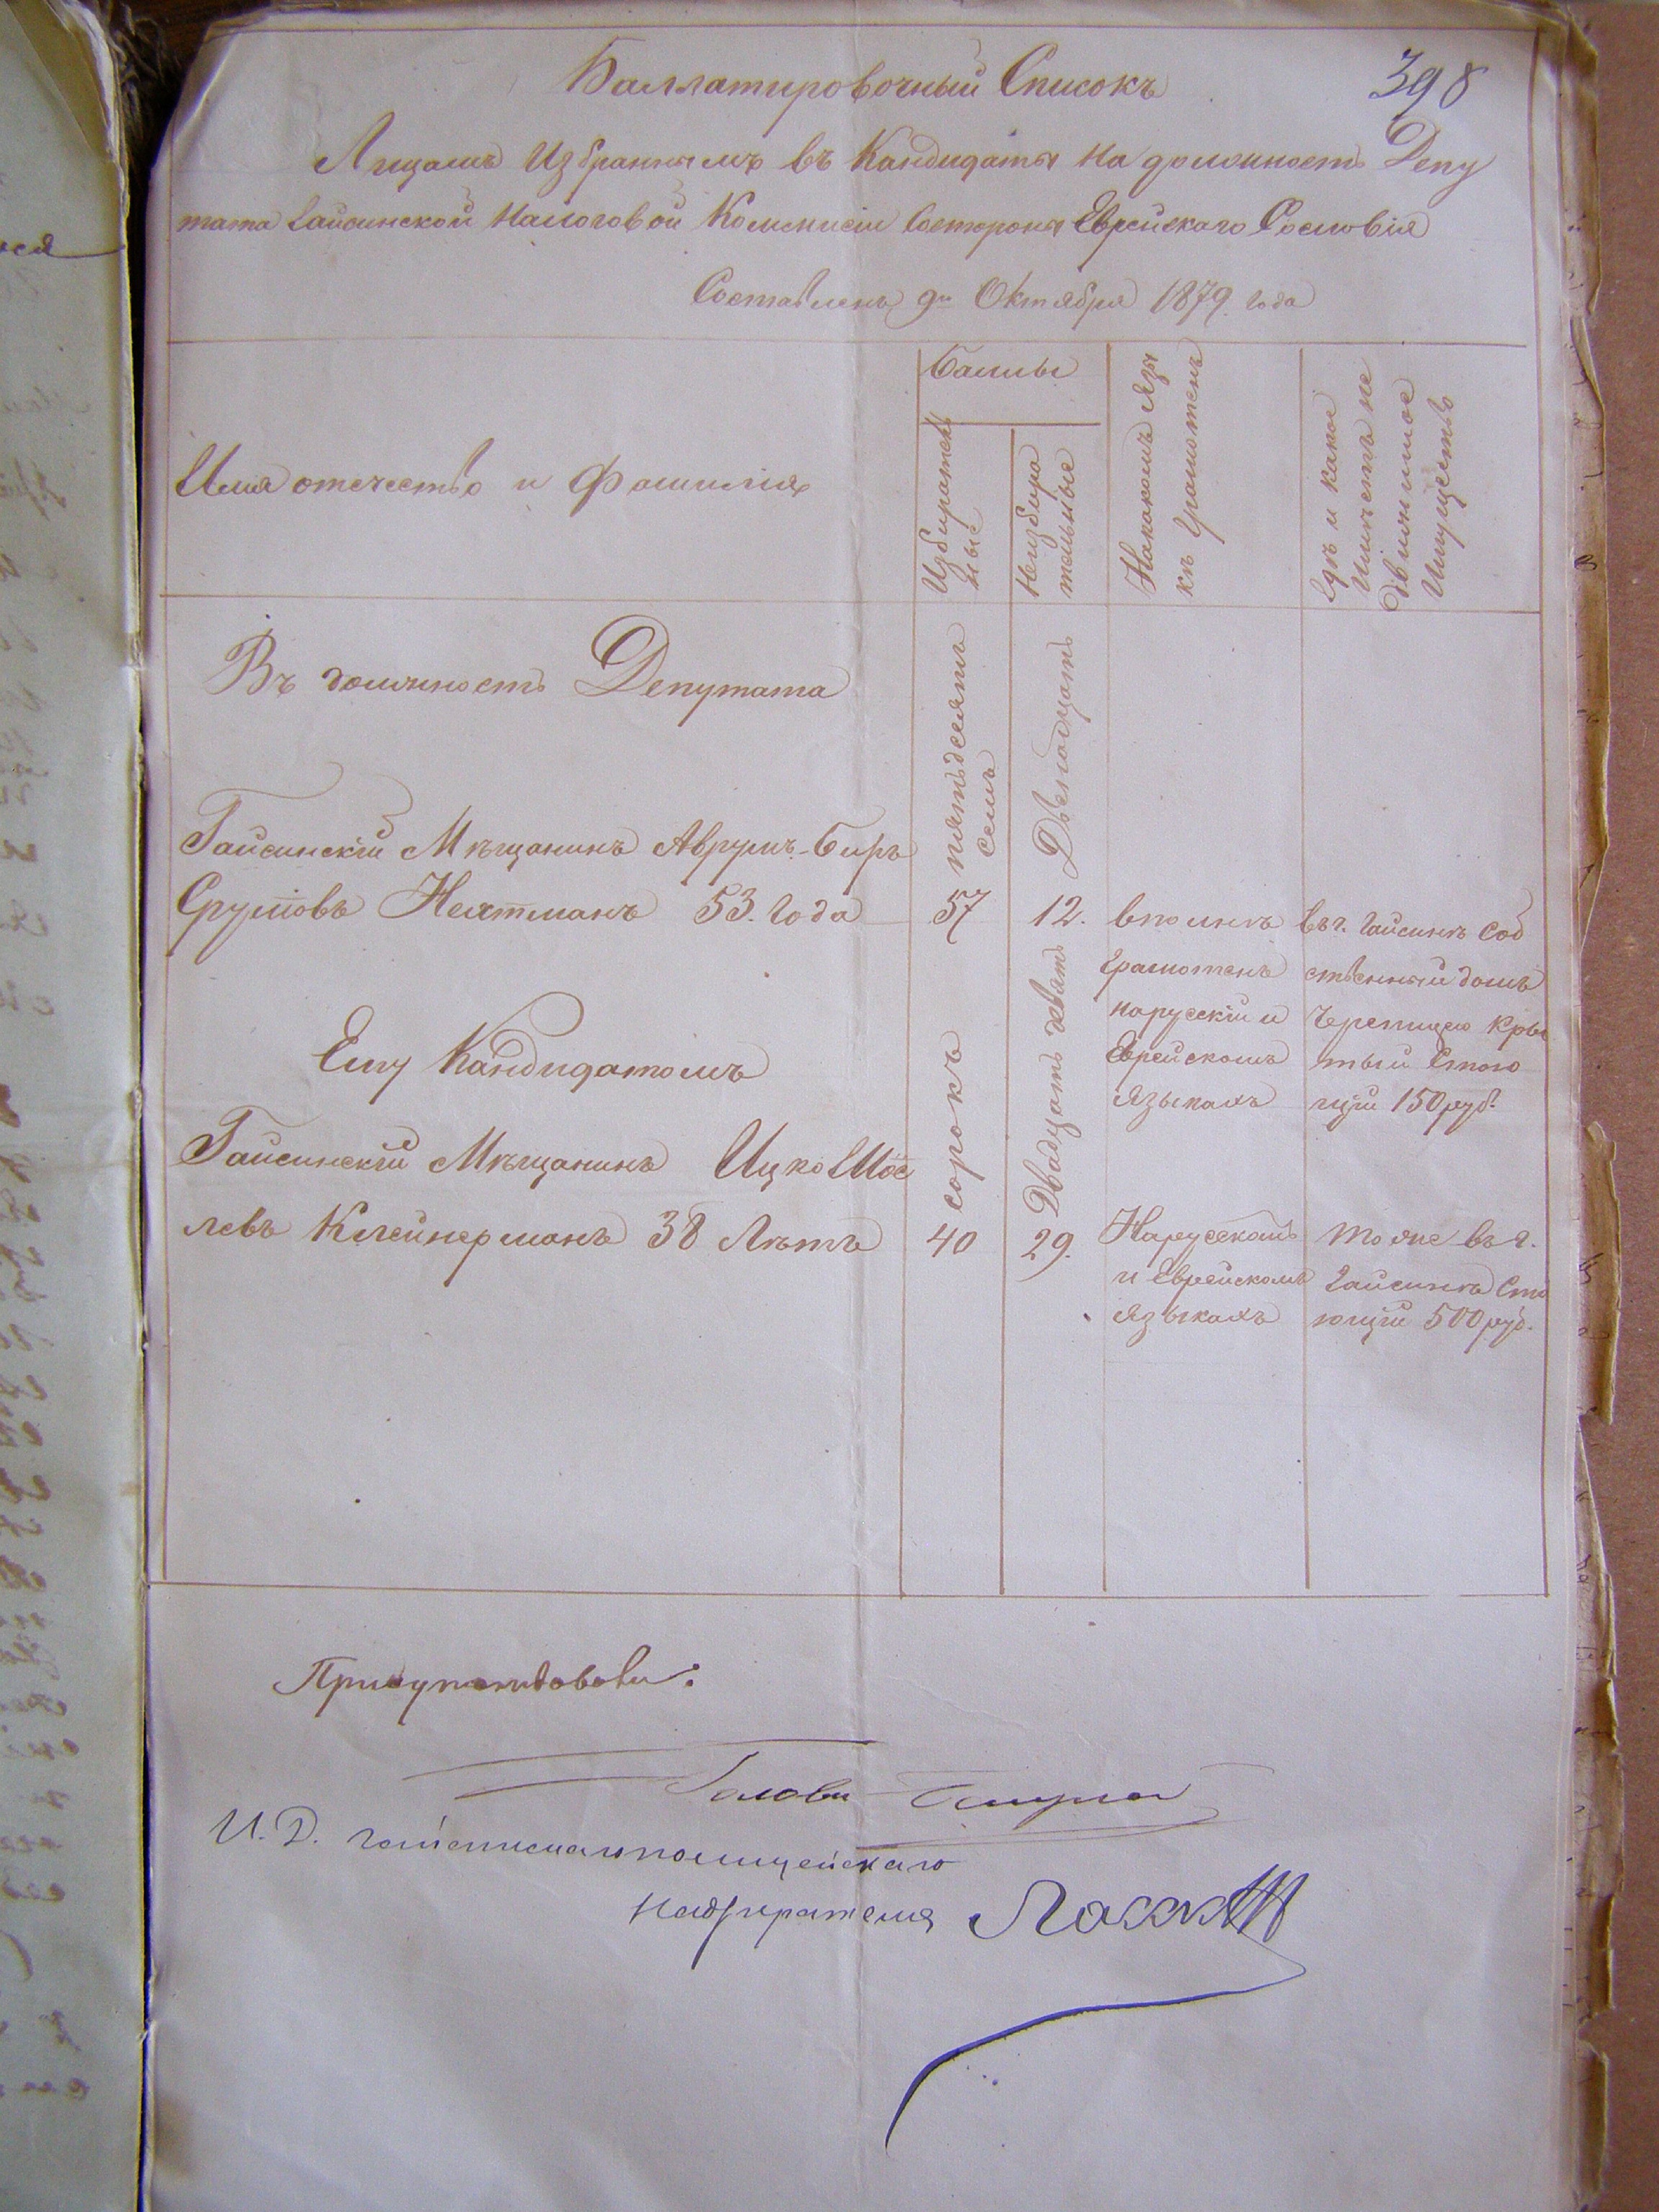 Баллатировочный Списокъ
398
Лицамъ Избраннымъ въ Кандидаты На должность Депу
тата Гайсинской Налоговой Комисіи Состороны Еврейскаго Сословія
Составленъ 9го Октября 1879 года
Имя отечество и Фамилия
Баллы
Избиратель
ные
Неизбира
тельные
Накакомъ Язы
къ Грамотенъ
Гдѣ и какое
Имѣетъ не
движимое
Имущество
Въ должность Депутата
Гайсинскій Мѣщанинъ Аврумъ-Беръ
Срулiовъ Нехтманъ 53. Года
пятьдесятъ
семь
57
Двенадцать
12.
вполнѣ
Грамотенъ
порусскіи и
Еврейскомъ
языкахъ
въ г. Гайсинѣ Соб
ственный домъ
Черепицею Кры
тый Стою
щій 150 руб.
Ему Кандидатомъ
Гайсинскій Мѣщанинъ Ицко Шос
левъ Клейнерманъ 38 Лѣтъ
сорокъ
40
Двадцать девять
29.
Нарусскомъ
и Еврейскомъ
языкахъ
тоже въ г.
Гайсинѣ Сто
ющій 500 руб.
Голова
И. Д. Гайсинскаго полицейскаго
Надзирателя